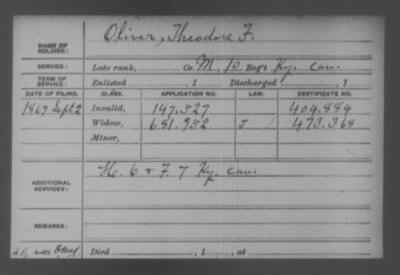 Oliver, Theodore F.
NAME OF SOLDIER:
SERVICE: Late rank, Co. M, 10 Reg't Ky. Cav.
TERM OF SERVICE: Enlisted , 1 Discharged , 1
DATE OF FILING. CLASS. APPLICATION NO. LAW. CERTIFICATE NO.
1869 Sept 2 Invalid, 147.527 404.884
Widow, 681.952 J 473.368
Minor,
ADDITIONAL SERVICES: K. 6 & F. 7 Ky. Cav.
REMARKS:
Died , 1 , at